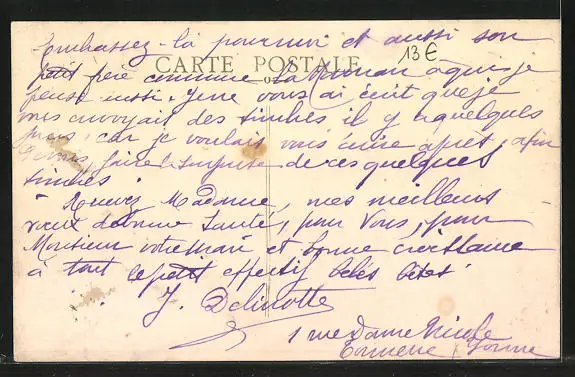 Embrassez-la pour moi et aussi son
13€
CARTE POSTALE
petit frère comme la Maman à qui je
pense aussi. Je ne vous ai écrit que je
vous envoyais des timbres il y a quelques
jours car je voulais vous écrire après, afin
de vous faire la surprise de ces quelques
timbres.
Recevez Madame, mes meilleurs
vœux de bonne santé, pour vous, pour
Monsieur votre mari et bonne croissance
à tout le petit effectif bébés bêtes!
J. Delinotte
1 rue Dame Nicole
Tonnerre Yonne